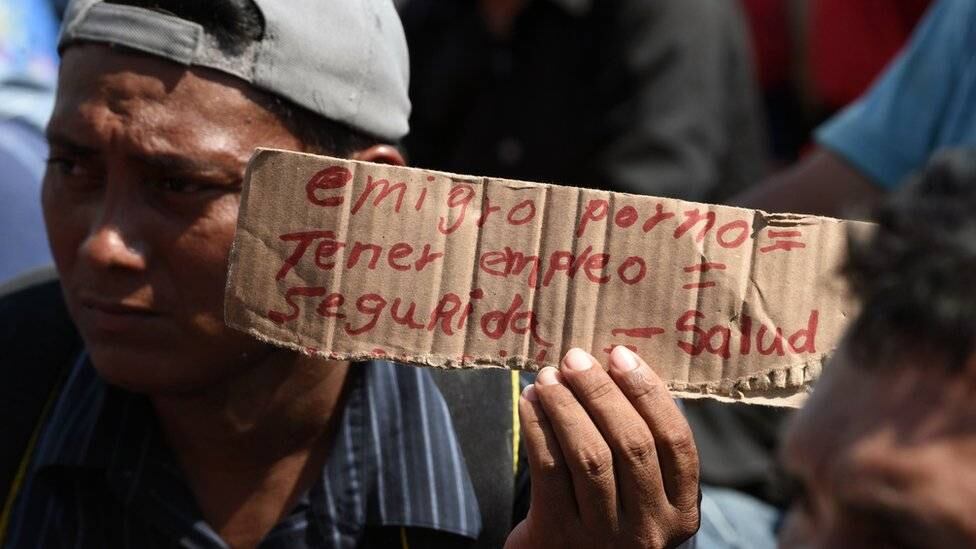 emigro porno =
Tener empleo =
SeguRida = Salud